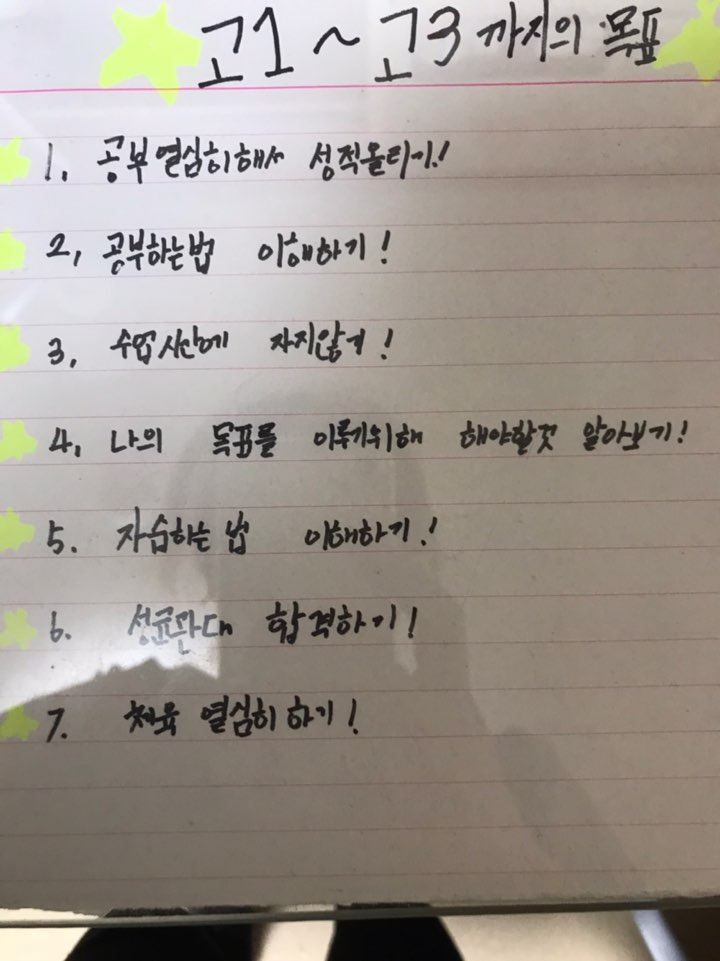 고1 ~ 고3 까지의 목표
1. 공부열심히해서 성적올리기!
2, 공부하는법 이해하기!
3, 수업시간에 자지않기!
4, 나의 목표를 이루기위해 해야할것 알아보기!
5. 자습하는 법 이해하기!
6. 성균관대 합격하기!
7. 체육 열심히 하기!